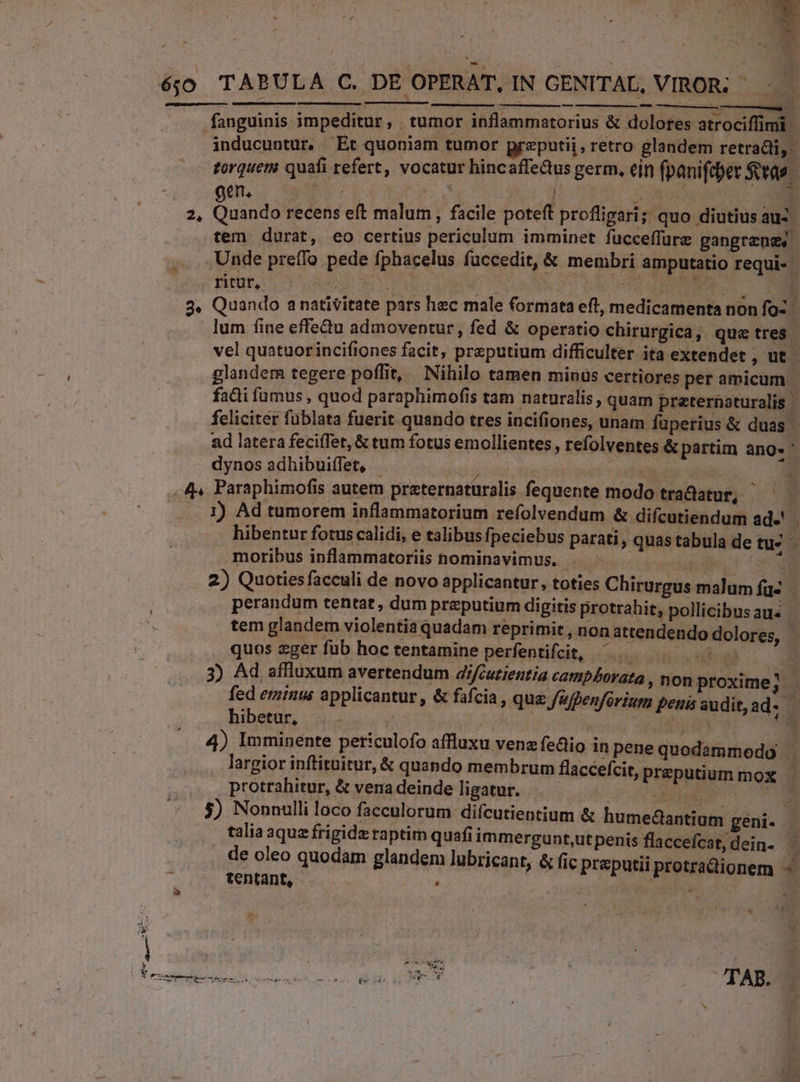 650 TABULA C. DE OPERAT. IN GENITAL. VIROR.
ſanguinis impeditur, tumor inflammatorius & dolores atrociſſimi
inducuntur. Et quoniam tumor præputii, retro glandem retracti,
torquem quaſi refert, vocatur hinc affectus germ. ein ſpaniſcher Krae
gen.
2, Quando recens eſt malum, facile poteſt profligari; quo diutius au-
tem durat, eo certius periculum imminet ſucceſſuræ gangrænæ,
Unde preſſo pede ſphacelus ſuccedit, & membri amputatio requi-
ritur,
3. Quando a nativitate pars hæc male formata eſt, medicamenta non ſo-
lum ſine effectu admoventur, ſed & operatio chirurgica, quæ tres
vel quatuor inciſiones facit, præputium difficulter ita extendet, ut
glandem tegere poſſit, Nihilo tamen minus certiores per amicum
facti ſumus, quod paraphimoſis tam naturalis, quam præternaturalis
feliciter ſublata fuerit quando tres inciſiones, unam ſuperius & duas
ad latera feciſſet, & tum fotus emollientes, reſolventes & partim ano-
dynos adhibuiſſet,
4. Paraphimoſis autem præternaturalis ſequente modo tractatur,
1) Ad tumorem inflammatorium reſolvendum & diſcutiendum ad-
hibentur fotus calidi, e talibus ſpeciebus parati, quas tabula de tu-
moribus inflammatoriis nominavimus.
2) Quoties ſacculi de novo applicantur, toties Chirurgus malum ſu-
perandum tentat, dum præputium digitis protrahit, pollicibus au-
tem glandem violentia quadam reprimit, non attendendo dolores,
quos æger ſub hoc tentamine perſentiſcit,
3) Ad affluxum avertendum diſcutientia camphorata, non proxime,
ſed eminus applicantur, & faſcia, quæ ſuſpenſorium penis audit, ad-
hibetur,
4) Imminente periculoſo affluxu venæ ſectio in pene quodammodo
largior inſtituitur, & quando membrum flacceſcit, præputium mox
protrahitur, & vena deinde ligatur.
5) Nonnulli loco ſacculorum diſcutientium & humectantium geni-
talia aquæ frigidæ raptim quaſi immergunt, ut penis flacceſcat, dein-
de oleo quodam glandem lubricant, & ſic præputii protractionem
tentant,
TAB.